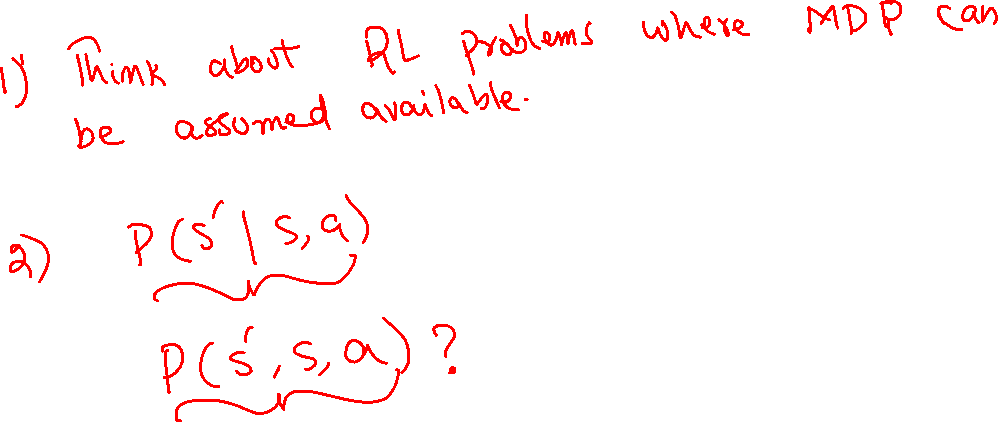 1) Think about RL problems where MDP can
be assumed available.
2) P(s'|s,a)
P(s',s,a)?